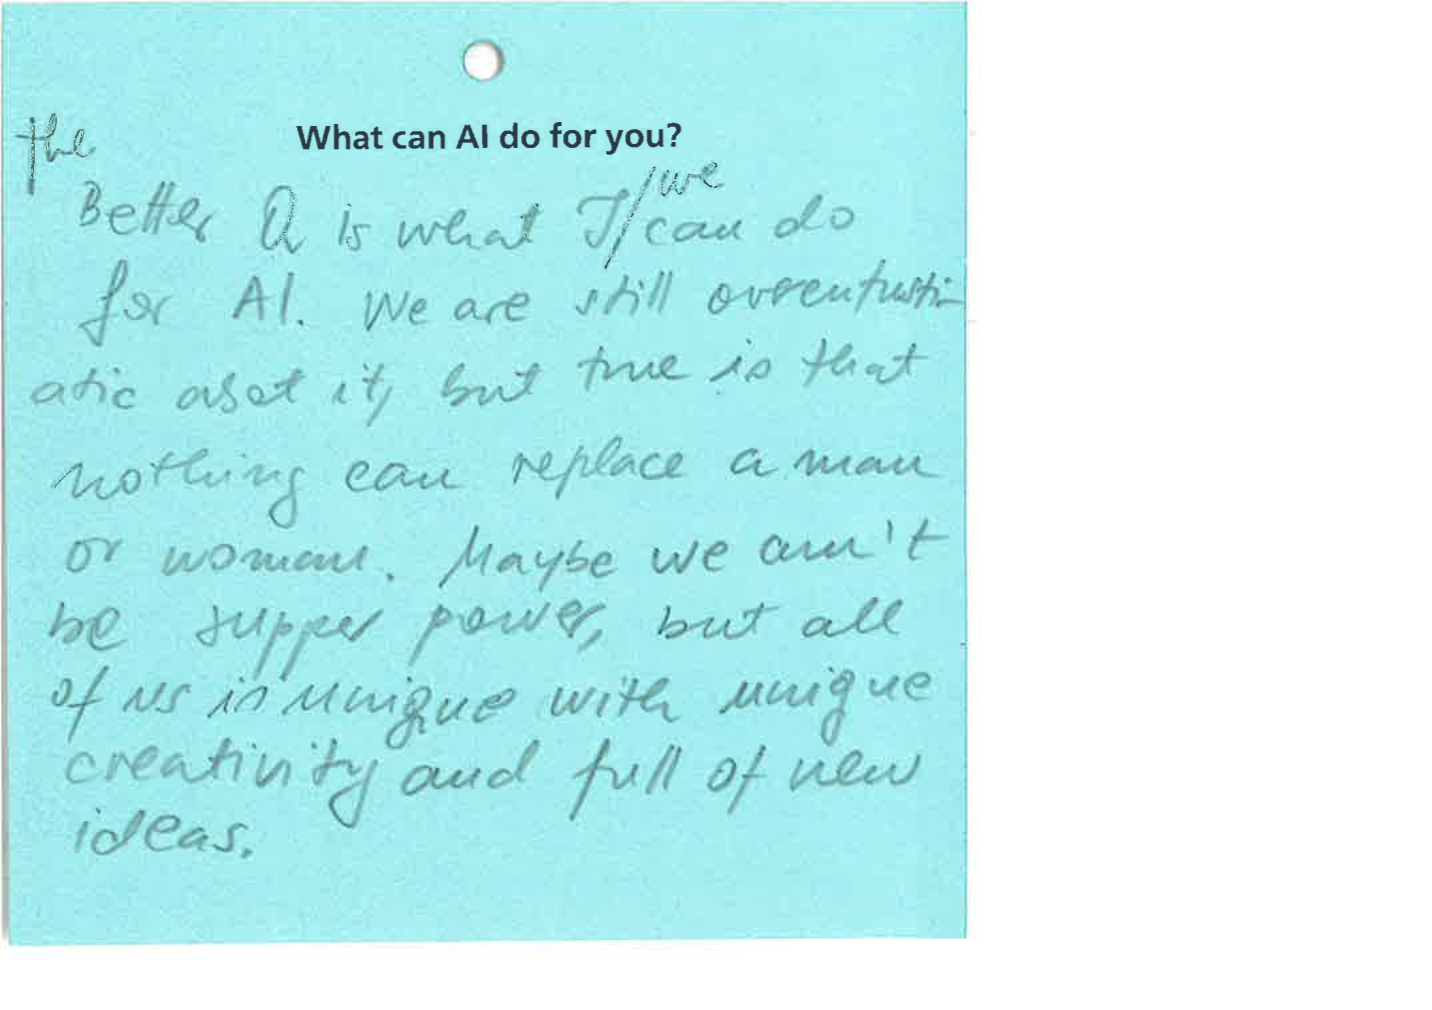 What can AI do for you?
the
Better Q is what I/we can do
for AI. We are still overentusti-
atic abot it, but true is that
nothing can replace a man
or woman. Maybe we can't
be supper power, but all
of us is unique with unique
creativity and full of new
ideas.